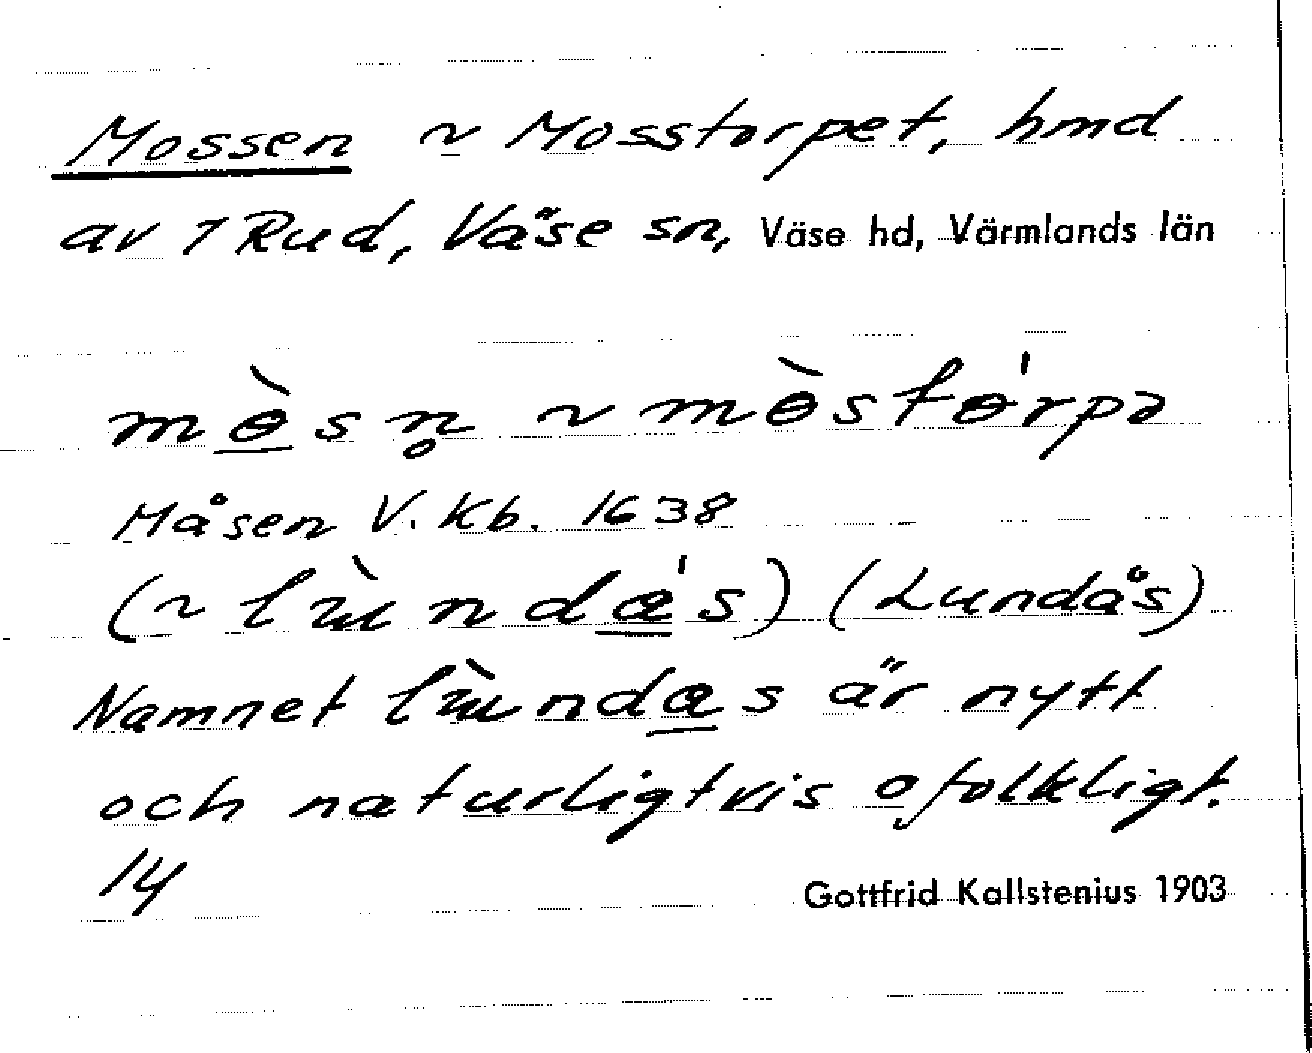 Mossen ~ Mosstorpet, hmd
av 1 Rud, Väse sn, Väse hd, Värmlands län
mɵ̀sn̥ ~ mɵ̀stɵ́rpə
Måsen V. Kb. 1638
(~ lùndás) (Lundås)
Namnet lùndas är nytt
och naturligtvis ofolkligt.
14 Gottfrid Kallstenius 1903